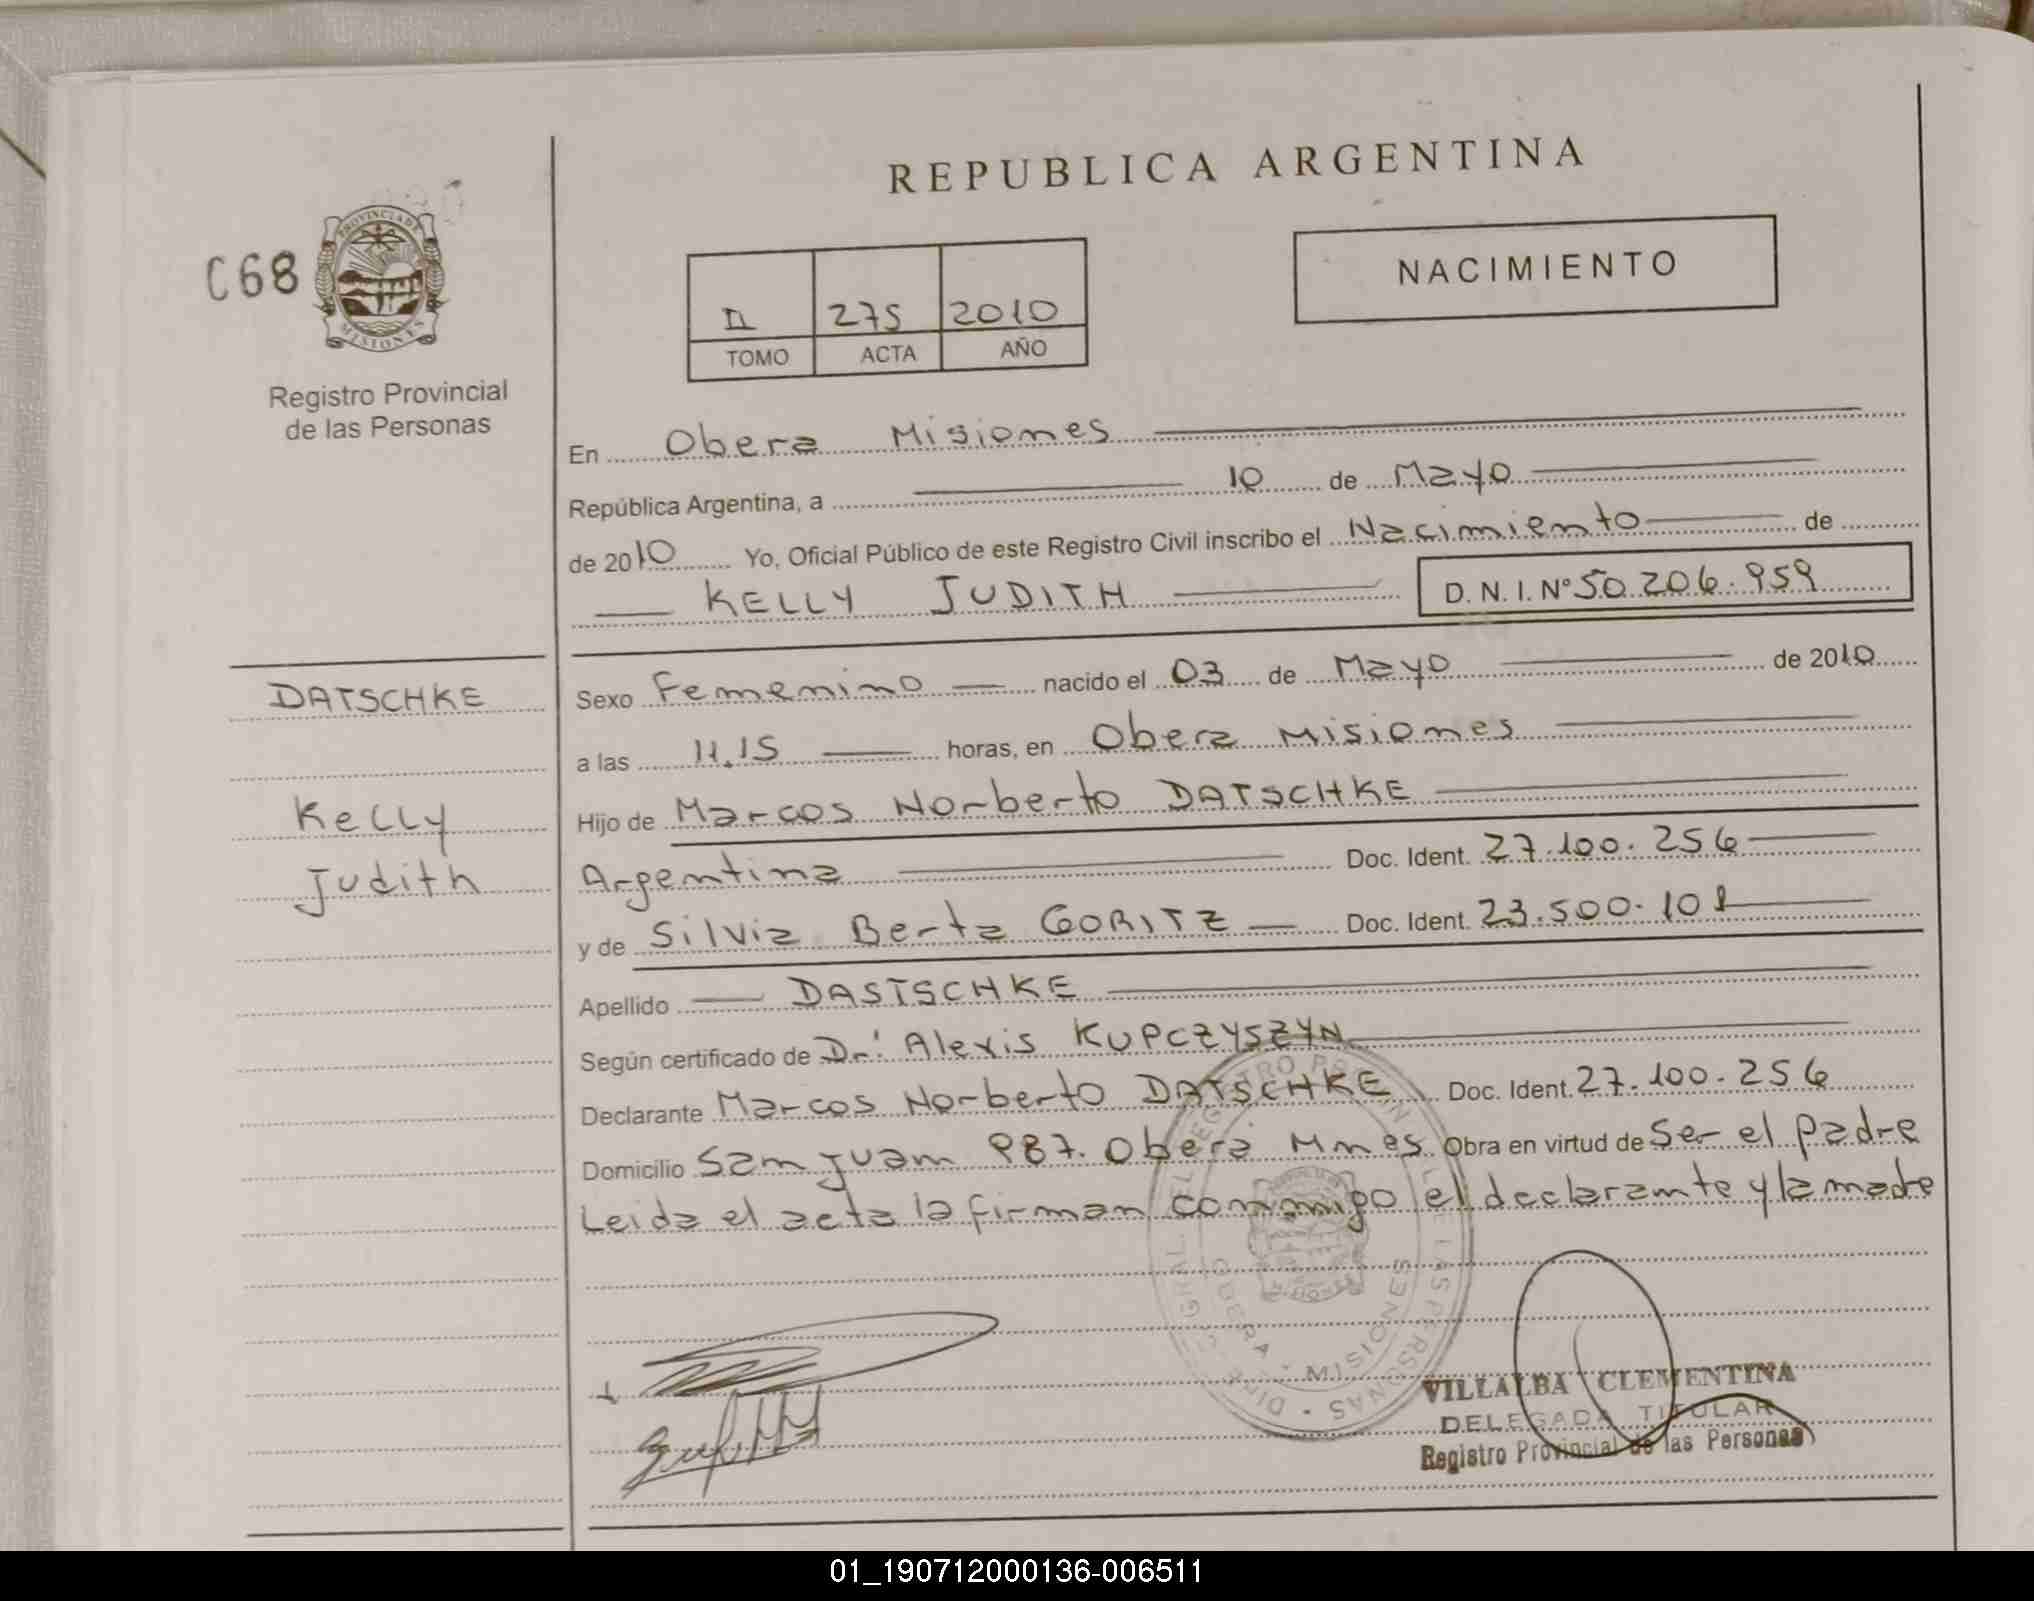 REPUBLICA ARGENTINA
C68
PROVINCIA DE
MISIONES
Registro Provincial
de las Personas
II 275 2010
TOMO ACTA AÑO
NACIMIENTO
En Obera Misiones
República Argentina, a 10 de Mayo
de 2010 Yo, Oficial Público de este Registro Civil inscribo el Nacimiento de
KELLY JUDITH D. N. I. Nº 50.206.959
DATSCHKE
Kelly
Judith
Sexo Femenino nacido el 03 de Mayo de 2010
a las 11.15 horas, en Obera Misiones
Hijo de Marcos Norberto DATSCHKE
Argentina Doc. Ident. 27.100.256
y de Silvia Berta GORITZ Doc. Ident. 23.500.101
Apellido DASTSCHKE
Según certificado de Dr. Alexis KUPCZYSZYN
Declarante Marcos Norberto DATSCHKE Doc. Ident. 27.100.256
Domicilio San Juan 987. Obera Mnes Obra en virtud de Ser el padre
Leida el acta la firman conmigo el declarante y la madre
OBERA - MISIONES
VILLALBA CLEMENTINA
DELEGADA TITULAR
Registro Provincial de las Personas
01_190712000136-006511